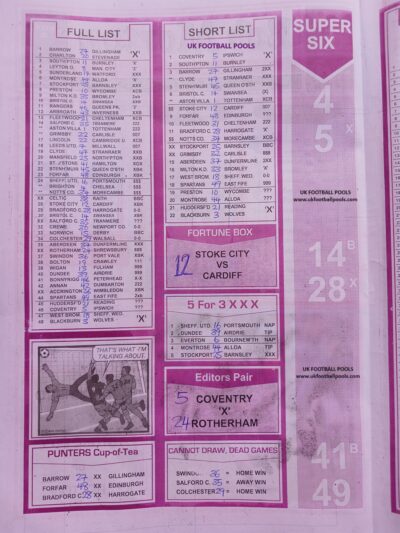 FULL LIST
1 BARROW 27 GILLINGHAM 'X'
2 CHARLTON 20 STEVENAGE
3 SOUTHPTON 11 BURNLEY 'X'
5 SUNDERLAND 17 WATFORD XXX
6 MONTROSE 44 ALLOA 'X'
STOCKPORT 25 BARNSLEY XXX
PRESTON 10 WYCOMBE XXX
MILTON K.D. 23 BROMLEY
BRISTOL C. 14 SWANSEA
RANGERS QUEENS PK
FLEETWOOD 31 CHELTENHAM
SALFORD C. 35 TRANMERE 222
ASTON VILLA 1 TOTTENHAM 222
GRIMSBY 32 CARLISLE
LINCOLN 22 CAMBRIDGE U.
LEEDS UTD MILLWALL 007
CLYDE 47 STRANRAER XXX
MANSFIELD 23 NORTHAMPTON XXX
ST J'STONE 41 HAMILTON XXX
STENHMUIR 45 QUEEN O'STH XXX
FORFAR 48 EDINBURGH XXX
SHEFF. UTD. 16 PORTSMOUTH
BRIGHTON CHELSEA 555
NOTTS CO MORECAMBE 555
CELTIC 38 RAITH BBC
STOKE CITY 12 CARDIFF XXX
BRADFORD C. 28 HARROGATE 0-0
BRISTOL C. 14 SWANSEA
SALFORD C. 35 TRANMERE ???
CREWE NEWPORT CO 0-0
NORWICH 15 DERBY BBC
COLCHESTER 29 WALSALL 0-0
ABERDEEN 37 DUNFERMLINE XXX
ROTHERHAM 24 SHREWSBURY 555
SWINDON 36 PORT VALE XXX
BOLTON 19 CRAWLEY 111
WIGAN 13 FULHAM 999
DUNDEE 39 AIRDRIE 999
BONNYRIGG PETERHEAD X-X
ANNAN 42 DUMBARTON 222
ACCRINGTON WIMBLEDON XXX
SPARTANS 49 EAST FIFE
HUDDERSF'D 21 READING ???
COVENTRY 5 IPSWICH
WEST BROM 18 SHEFF. WED.
BLACKBURN 3 WOLVES 'X'
SHORT LIST
UK FOOTBALL POOLS
1 COVENTRY 5 IPSWICH 'X'
2 SOUTHPTON 11 BURNLEY
BARROW 27 GILLINGHAM 2XX
CLYDE 47 STRANRAER XXX
5 STENHMUIR 45 QUEEN O'STH XXX
BRISTOL C. 14 SWANSEA (X)
ASTON VILLA 1 TOTTENHAM XXX
STOKE CITY 12 CARDIFF 007
FORFAR 48 EDINBURGH ???
FLEETWOOD 31 CHELTENHAM 222
BRADFORD C. 28 HARROGATE 'X'
NOTTS CO. MORECAMBE XXX
STOCKPORT 25 BARNSLEY BBC
GRIMSBY 32 CARLISLE
ABERDEEN 37 DUNFERMLINE 2XX
MILTON K.D. 23 BROMLEY 'X'
WEST BROM. 18 SHEFF. WED. 0-0
SPARTANS 49 EAST FIFE 999
PRESTON 10 WYCOMBE ???
MONTROSE 44 ALLOA ???
21 HUDDERSF'D 21 READING 'X'
22 BLACKBURN 3 WOLVES
FORTUNE BOX
12 STOKE CITY
VS
CARDIFF
5 For 3 X X X
1 SHEFF. UTD. 16 PORTSMOUTH NAP
2 DUNDEE 39 AIRDRIE TIP
3 EVERTON 6 BOURNEM'TH NAP
4 MONTROSE 44 ALLOA TIP
5 STOCKPORT 25 BARNSLEY XXX
Editors Pair
5 COVENTRY
'X'
24 ROTHERHAM
THAT'S WHAT I'M
TALKING ABOUT..
PUNTERS Cup-of-Tea
BARROW 27 XX GILLINGHAM
FORFAR 48 XX EDINBURGH
BRADFORD C. 28 XX HARROGATE
CANNOT DRAW, DEAD GAMES
SWINDON 36 = HOME WIN
SALFORD C. 35 = AWAY WIN
COLCHESTER 29 = HOME WIN
SUPER
SIX
4
5 X
UK FOOTBALL POOLS
www.ukfootballpools.com
14 B
28 X
UK FOOTBALL POOLS
www.ukfootballpools.com
41 B
49